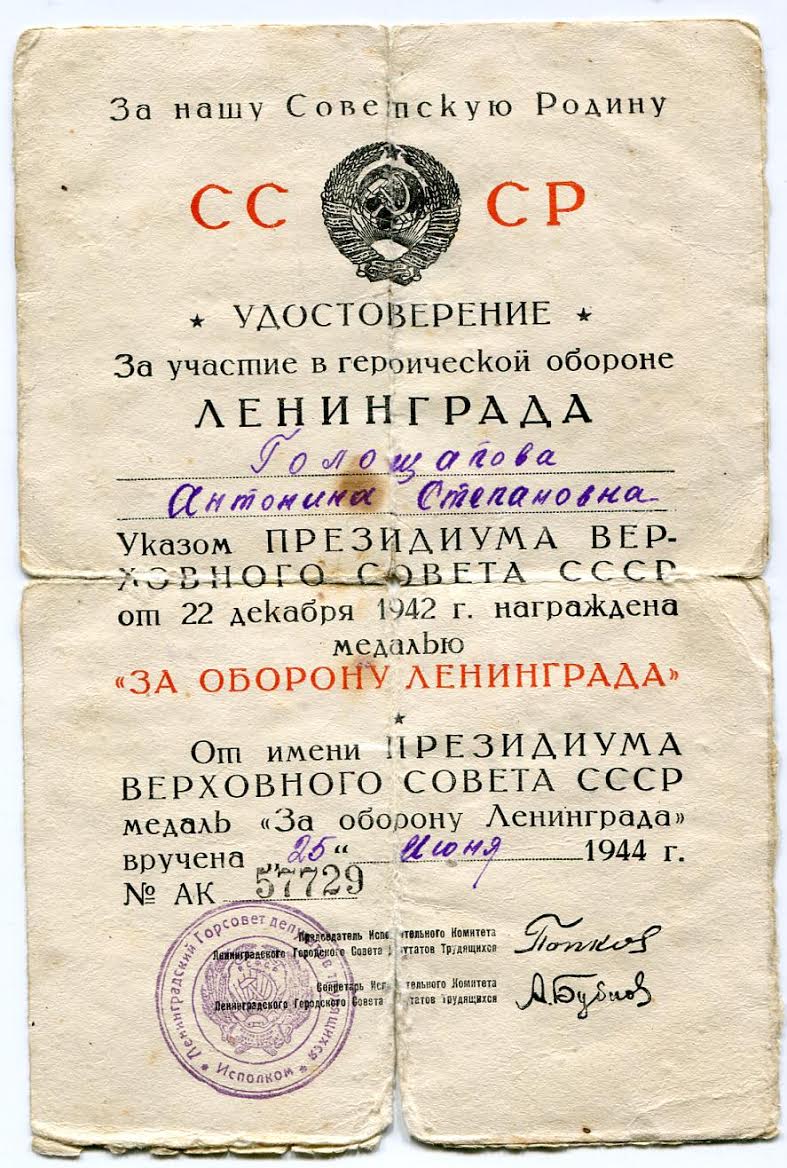 За нашу Советскую Родину
СС СР
★ УДОСТОВЕРЕНИЕ ★
За участие в героической обороне
ЛЕНИНГРАДА
Голощапова
Антонина Степановна
Указом ПРЕЗИДИУМА ВЕР-
ХОВНОГО СОВЕТА СССР
от 22 декабря 1942 г. награждена
медалью
«ЗА ОБОРОНУ ЛЕНИНГРАДА»
★
От имени ПРЕЗИДИУМА
ВЕРХОВНОГО СОВЕТА СССР
медаль «За оборону Ленинграда»
вручена „25“ Июня 1944 г.
№ АК 57729
Председатель Исполнительного Комитета
Ленинградского Городского Совета Депутатов Трудящихся Попков
Секретарь Исполнительного Комитета
Ленинградского Городского Совета Депутатов Трудящихся А.Бубнов
Ленинградский Горсовет депутатов трудящихся
★ Исполком ★